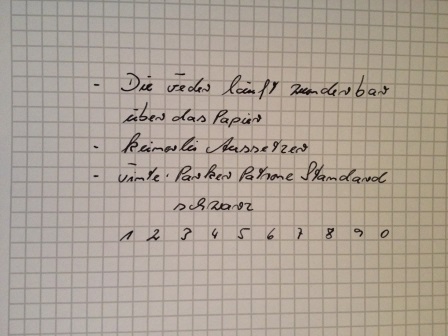 - Die Feder läuft wunderbar
über das Papier
- keinerlei Aussetzer
- Tinte: Parker Patrone Standard
schwarz
1 2 3 4 5 6 7 8 9 0